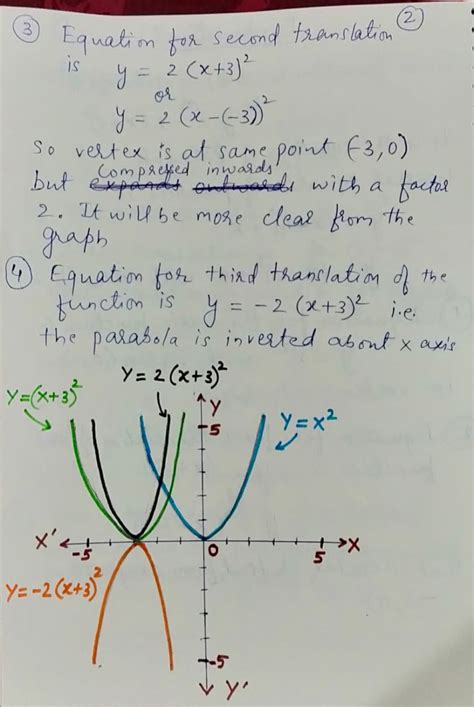 (2)
(3) Equation for second translation
is y = 2 (x+3)²
or
y = 2 (x-(-3))²
So vertex is at same point (-3,0)
compressed inwards
but expands outwards with a factor
2. It will be more clear from the
graph
(4) Equation for third translation of the
function is y = -2 (x+3)² i.e.
the parabola is inverted about x axis
y = 2(x+3)²
y=(x+3)²
Y
5
y = x²
X'
-5
0
5
X
y=-2(x+3)²
-5
Y'